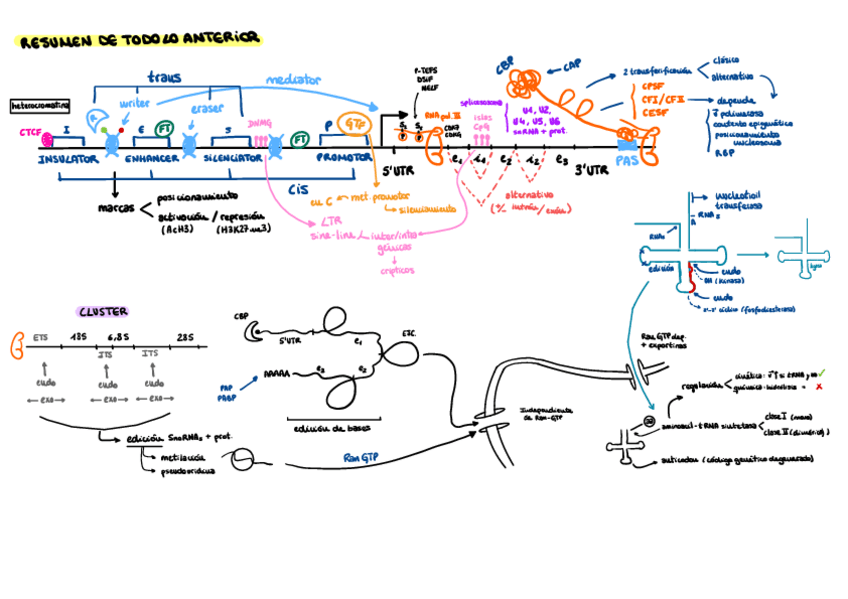 RESUMEN DE TODO LO ANTERIOR
heterocromatina
trans
mediator
writer
eraser
CTCF
I
E
FT
S
DNMG
FT
P
GTF
INSULATOR
ENHANCER
SILENCIATOR
PROMOTOR
cis
marcas
posicionamiento
activación / represión
(AcH3) (H3K27me3)
en C ← met. promotor
→ silenciamiento
LTR
sine-line
inter/intra
génicas
crípticos
P-TEFB
DSIF
NELF
RNA pol. II
S5 S2
P P
5'UTR
spliceosoma
U1, U2,
U4, U5, U6
snRNA + prot.
islas
CpG
e1 i1 e2 i2 e3
3'UTR
alternativo
(% intrón/exón)
CBP
CAP
PAS
2 transferificación
clásica
alternativa
CPSF
CFI/CFII
CESF
depende
polimerasa
contexto epigenético
posicionamiento
nucleosoma
RBP
nucleotidil
transferasa
RNAs
edición
endo
OH (kinasa)
endo
2'-3' cíclico (fosfodiesterasa)
CLUSTER
ETS 18S 5,8S 28S
ITS ITS
endo endo endo
← exo → ← exo → ← exo →
edición SnoRNAs + prot.
metilación
pseudouridina
CBP
5'UTR
e1
EJC.
PAP
PABP
AAAAA
e3
e2
edición de bases
Ran GTP
Independiente
de Ran-GTP
Ran GTP dep.
+ exportinas
regulación
aminoacil-tRNA sintetasa
clase I (mono)
clase II (dimérica)
anticodon (código genético degenerado)